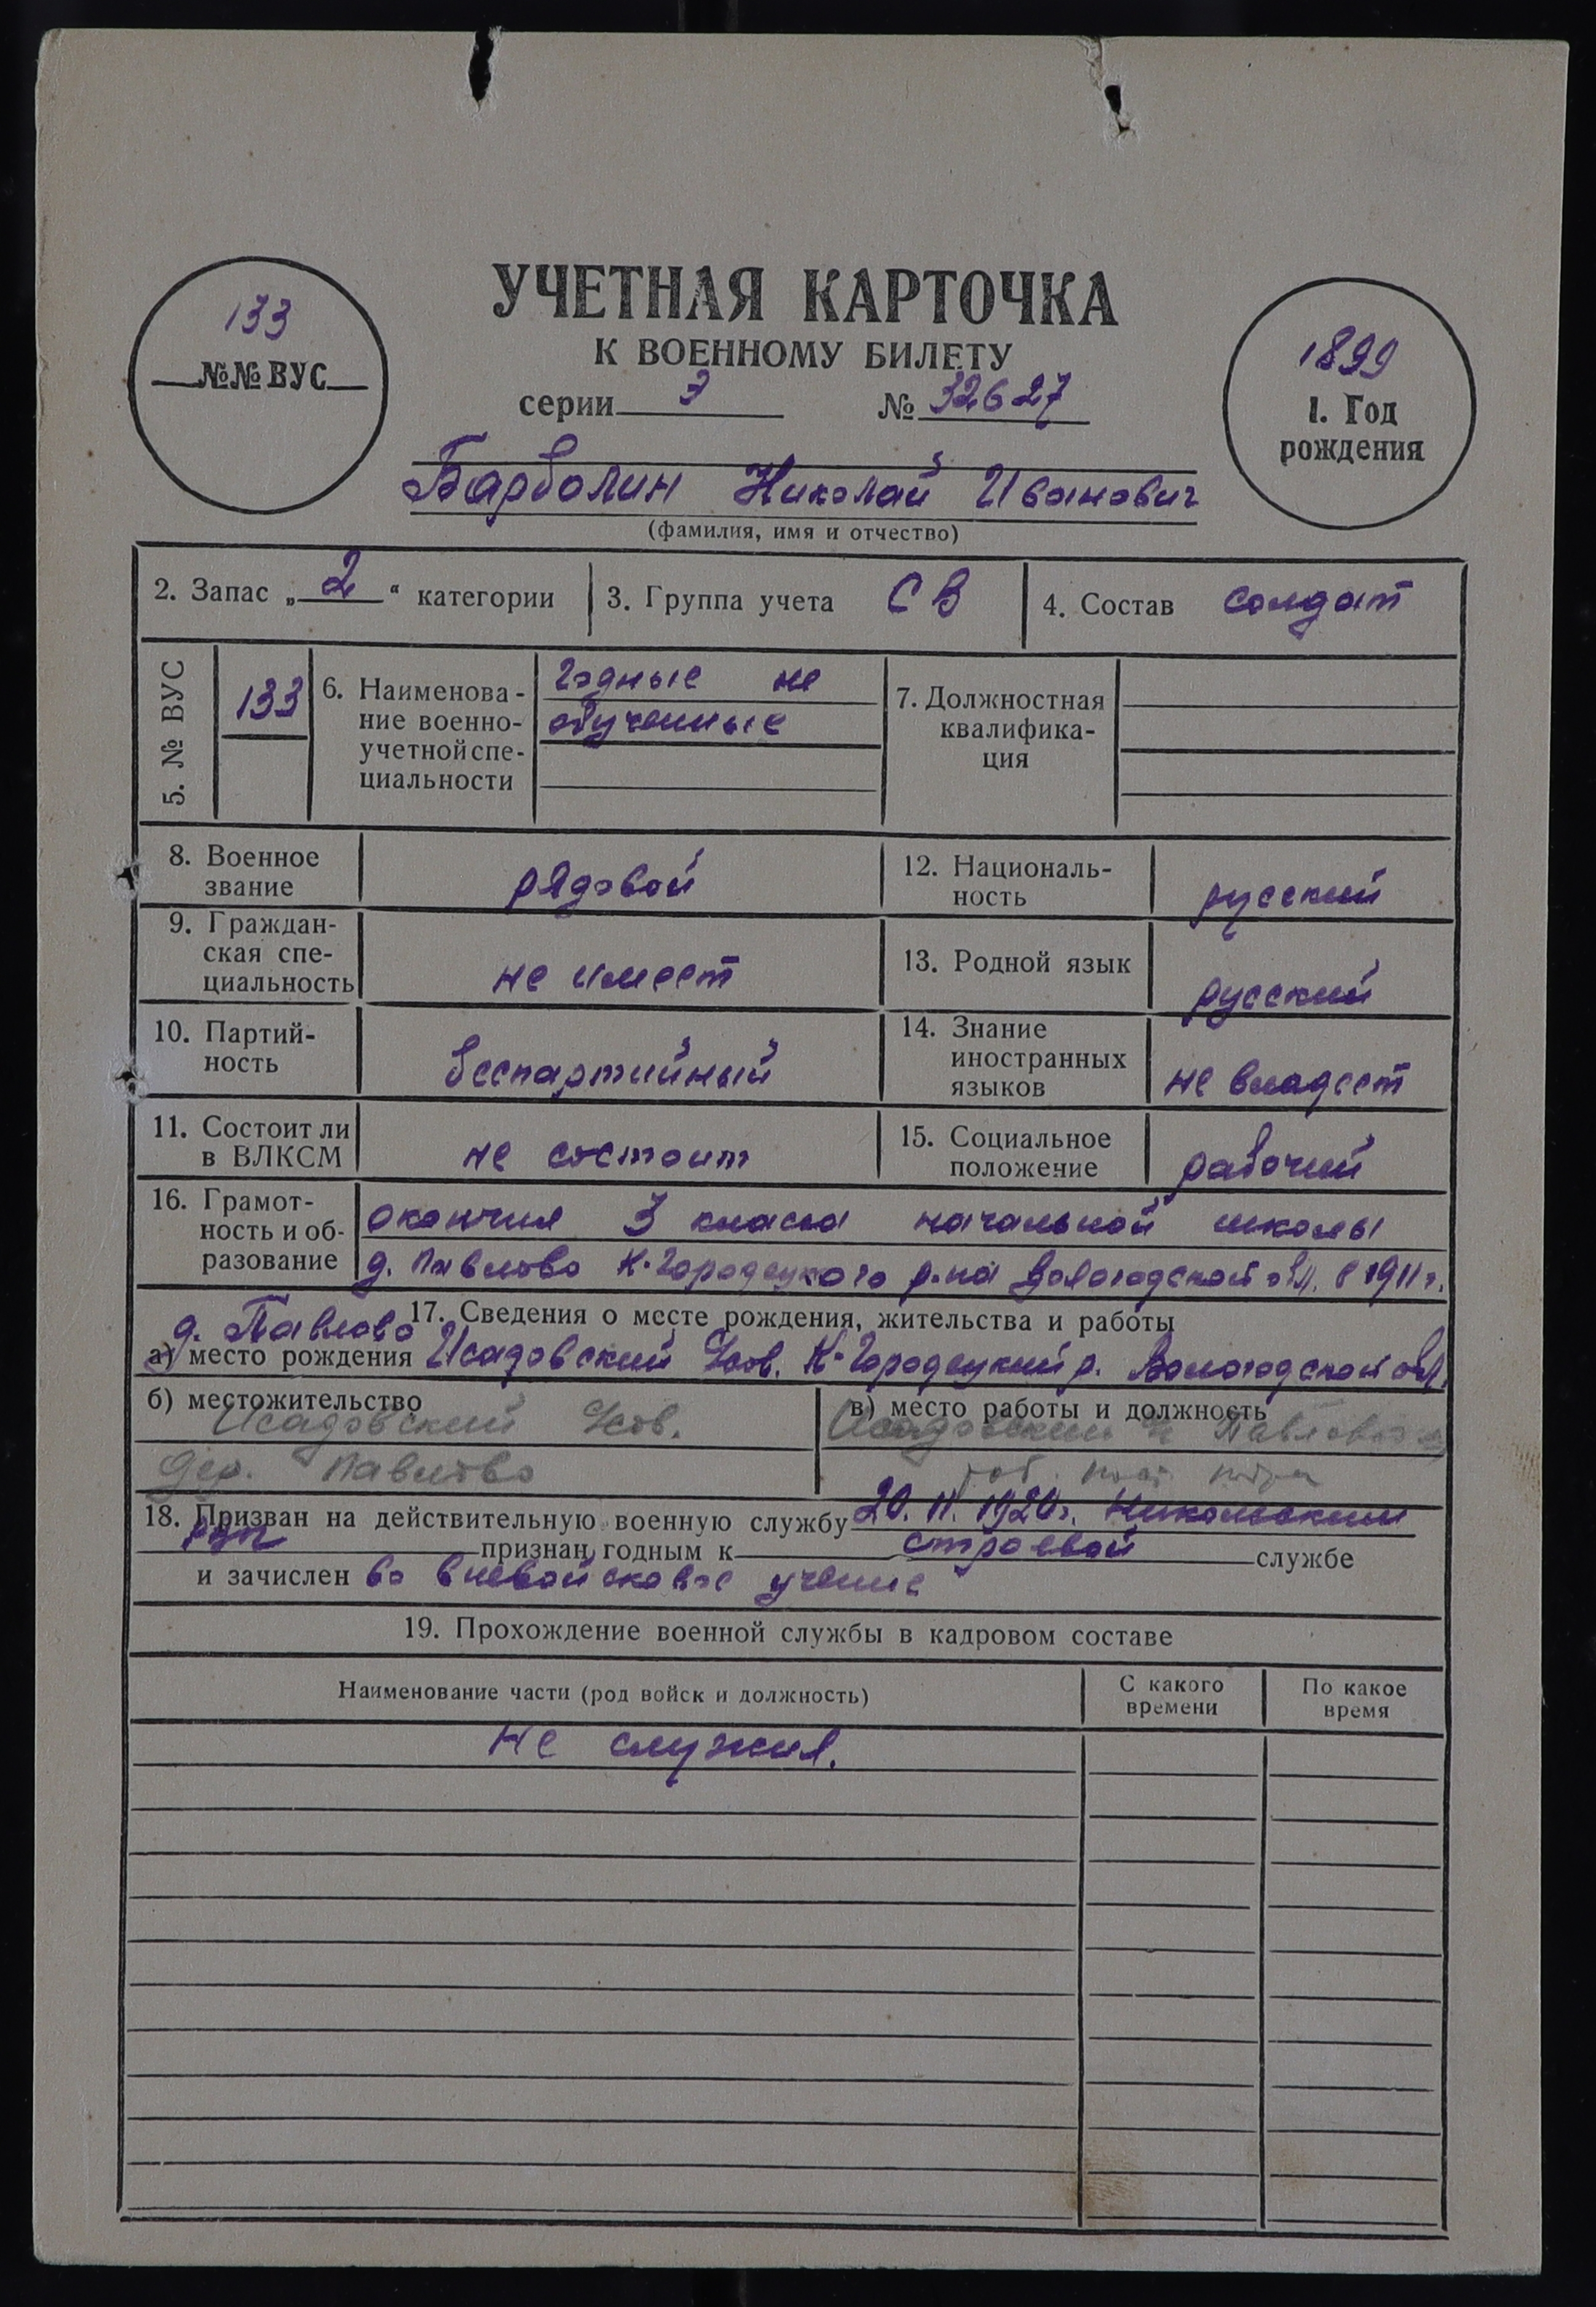 УЧЕТНАЯ КАРТОЧКА
К ВОЕННОМУ БИЛЕТУ
серии Э № 32627
133
№№ ВУС
1899
1. Год
рождения
Барболин Николай Иванович
(фамилия, имя и отчество)
2. Запас „2“ категории
3. Группа учета СВ
4. Состав солдат
5. № ВУС
133
6. Наименова-
ние военно-
учетной спе-
циальности
годные не
обученные
7. Должностная
квалифика-
ция
8. Военное
звание
рядовой
12. Националь-
ность
русский
9. Граждан-
ская спе-
циальность
не имеет
13. Родной язык
русский
10. Партий-
ность
беспартийный
14. Знание
иностранных
языков
не владеет
11. Состоит ли
в ВЛКСМ
не состоит
15. Социальное
положение
рабочий
16. Грамот-
ность и об-
разование
окончил 3 класса начальной школы
д. Павлово К-Городецкого р-на Вологодской обл. в 1911 г.
17. Сведения о месте рождения, жительства и работы
д. Павлово
а) место рождения Исадовский с/сов. К-Городецкий р. Вологодской обл.
б) местожительство
Исадовский с/сов.
дер. Павлово
в) место работы и должность
Исадовский Павлово
раб.
18. Призван на действительную военную службу 20. II. 1920 г. Никольским
признан годным к строевой службе
и зачислен во вневойсковое учение
19. Прохождение военной службы в кадровом составе
Наименование части (род войск и должность)
С какого
времени
По какое
время
не служил.